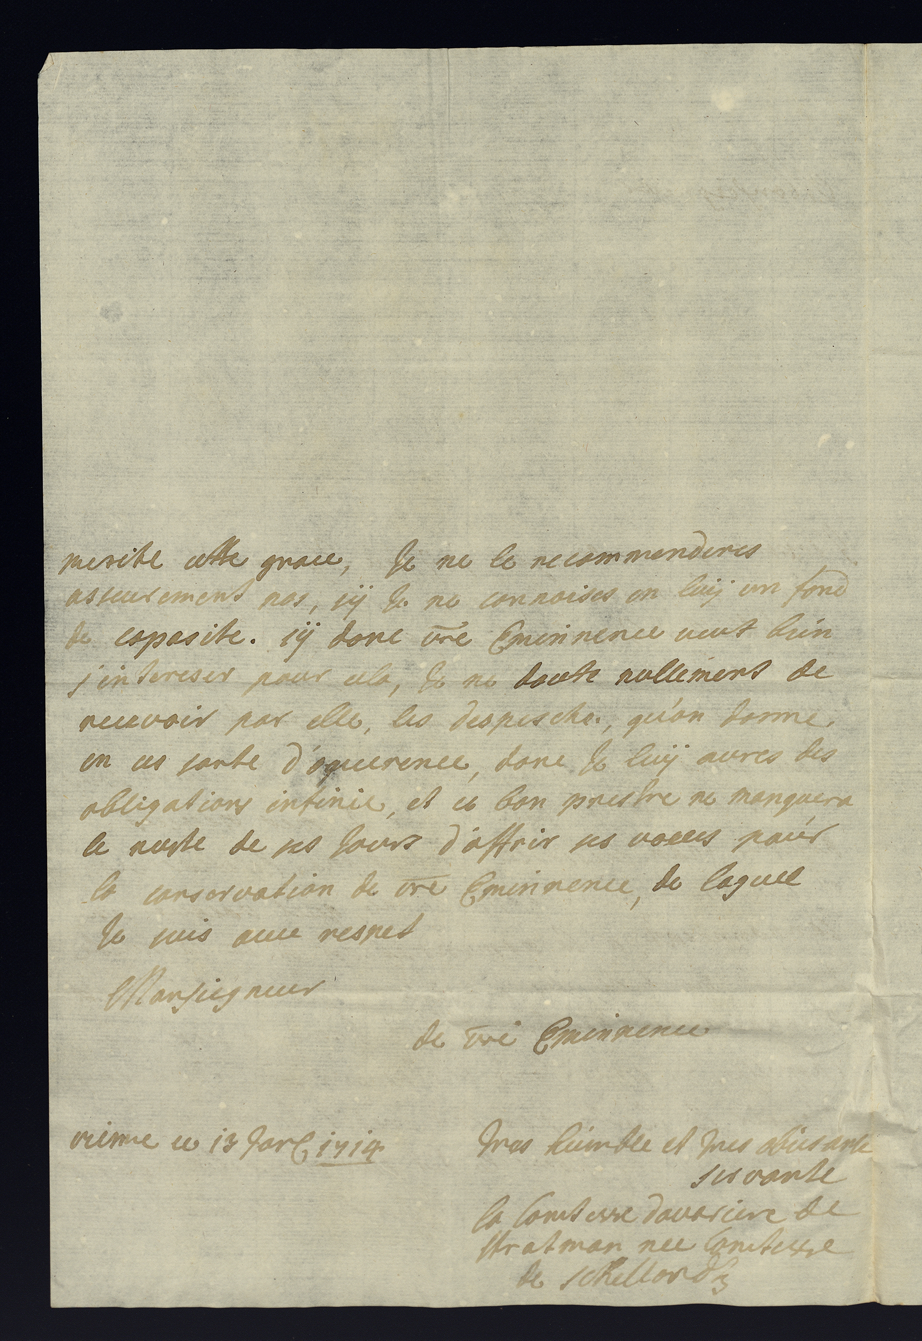 merite cette grace, Je ne le recommenderes
asseurement pas, sÿ Je ne connoises en luÿ un fond
de caposite. sÿ donc vre Eminnence veut bien
s'intereser pour cela, Je ne doute nullement de
recevoir par elle, les despesche, qu'on donne
en ces sorte d'oquerence, donc Je luÿ aures des
obligations infinie, et ce bon prestre ne manquera
le reste de ses Jours d'offrir ses voeus pour
la conservation de vre Eminnence, de laquel
Je suis avec respet
Monsiegneur
de vre Eminnence
vienne ce 13 1714
tres humble et tres obeisante
servante
la Comtesse douariere de
Stratman nee Comtesse
de